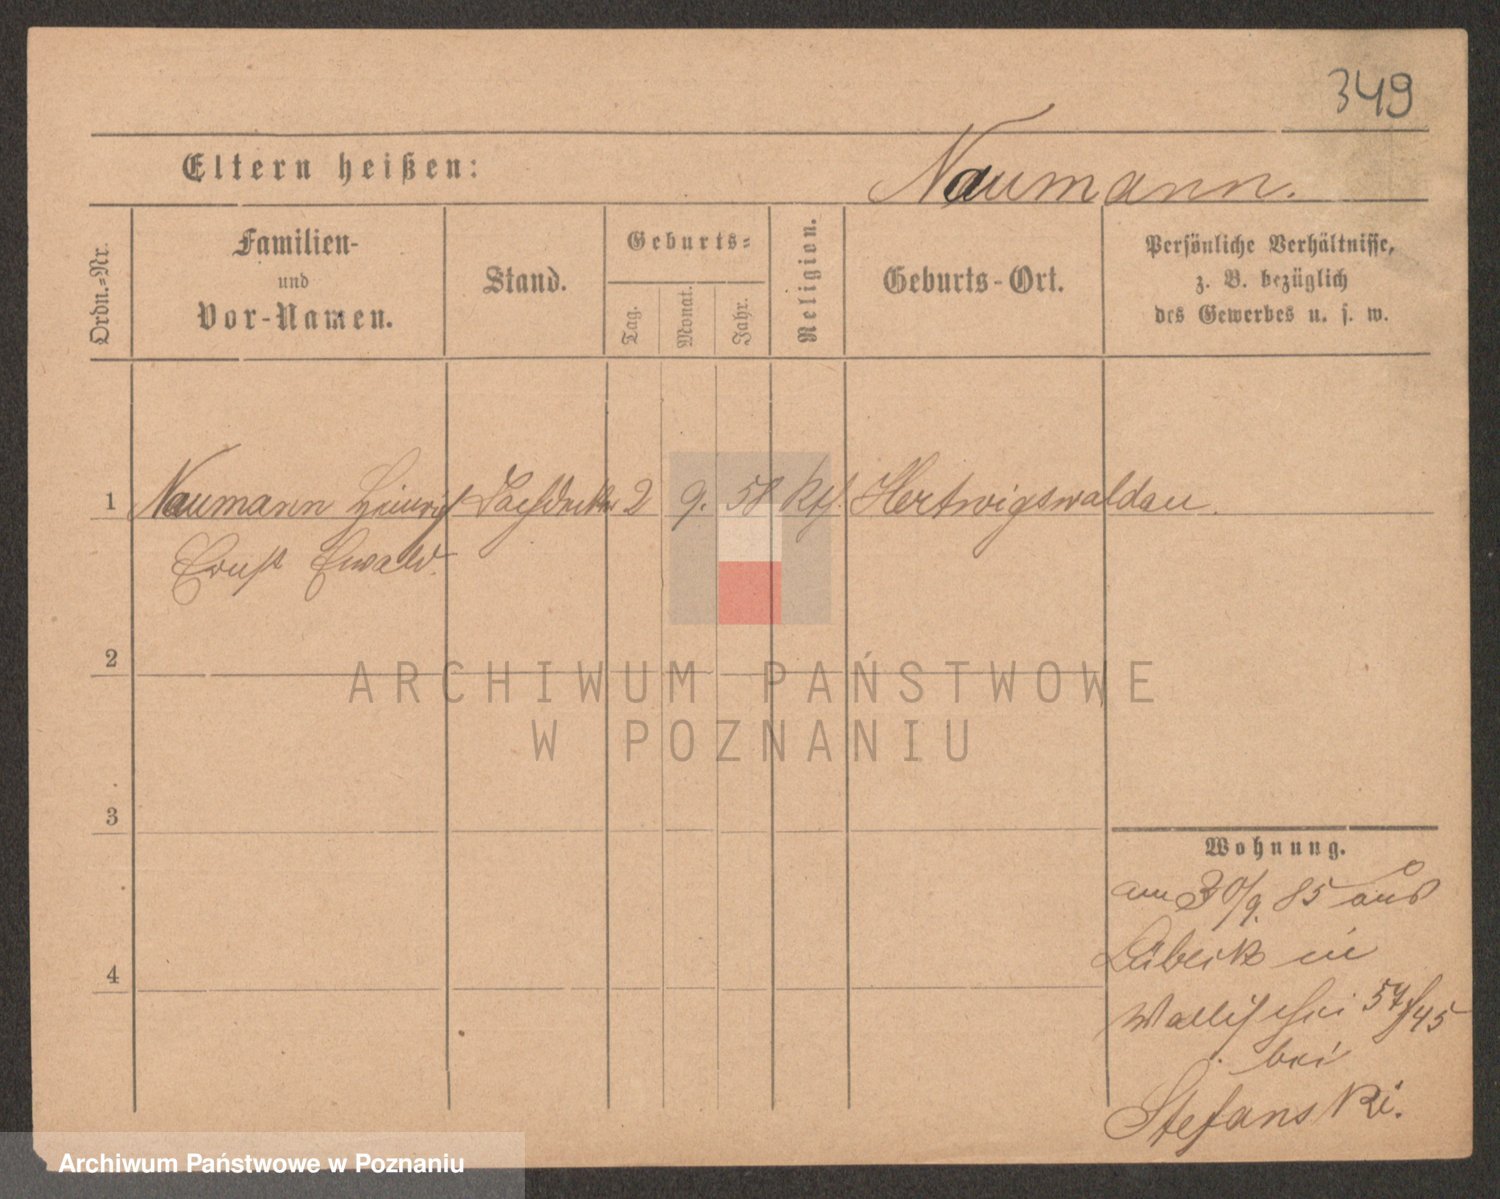 349
Eltern heißen:
Naumann.
Ordn.-Nr.
Familien-
und
Vor-Namen.
Stand.
Geburts-
Tag.
Monat.
Jahr.
Religion.
Geburts-Ort.
Persönliche Verhältnisse,
z. B. bezüglich
des Gewerbes u. s. w.
1 Naumann Heinrich Dachdecker 2 9. 58 Hertwigswaldau.
Ernst Ewald.
2
ARCHIWUM PAŃSTWOWE
W POZNANIU
3
Wohnung.
am 30/9. 85 aus
Lübeck in
4
Wallischei 57/45
bei
Stefanski.
Archiwum Państwowe w Poznaniu